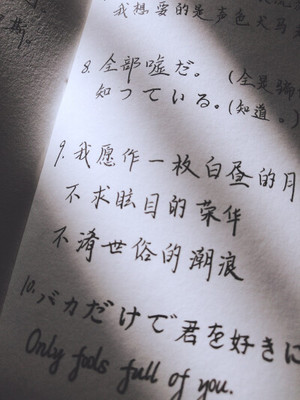 我想要的是声色天马
8. 全部嘘だ。(全是
知っている。(知道。)
9. 我愿作一枚白昼的月
不求眩目的荣华
不淆世俗的潮浪
10. バカだけで君を好きに
Only fools full of you.